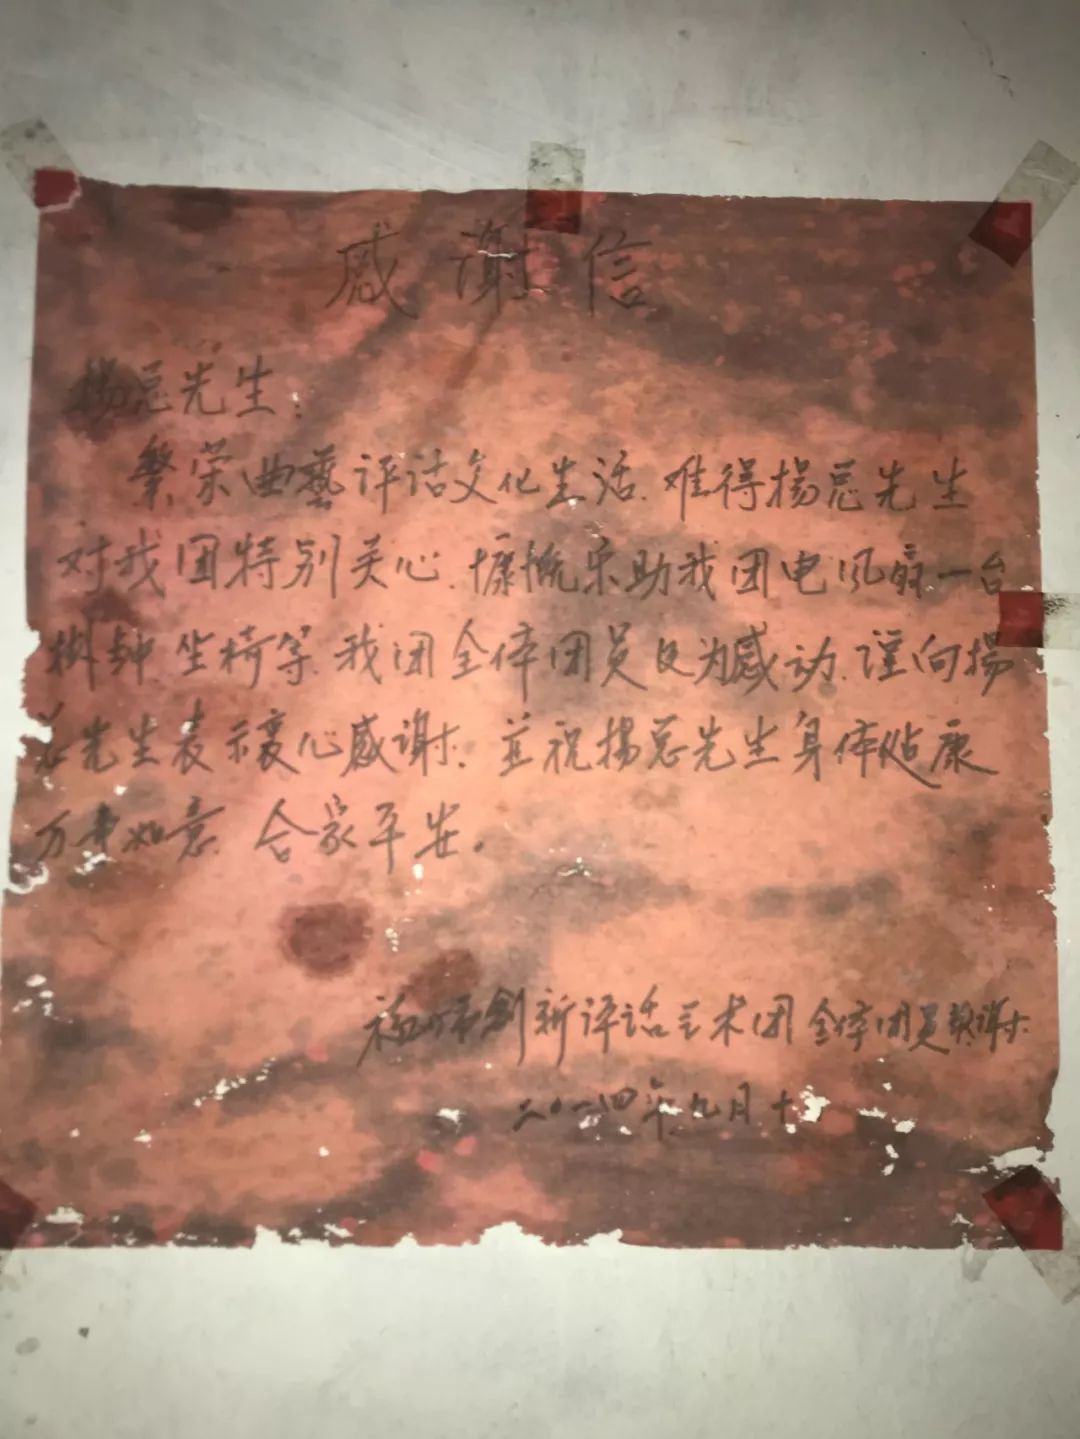 感谢信
杨总先生：
繁荣曲藝评话文化生活.难得揚总先生
对我团特别关心.慷慨乐助我团电风扇一台
钟坐椅等.我团全体团员为感动.谨向揚
总先生表示衷心感谢.并祝揚总先生身体健康
万事如意.合家平安。
福州市創新评话艺术团全体团员敬谢
二〇一四年九月十